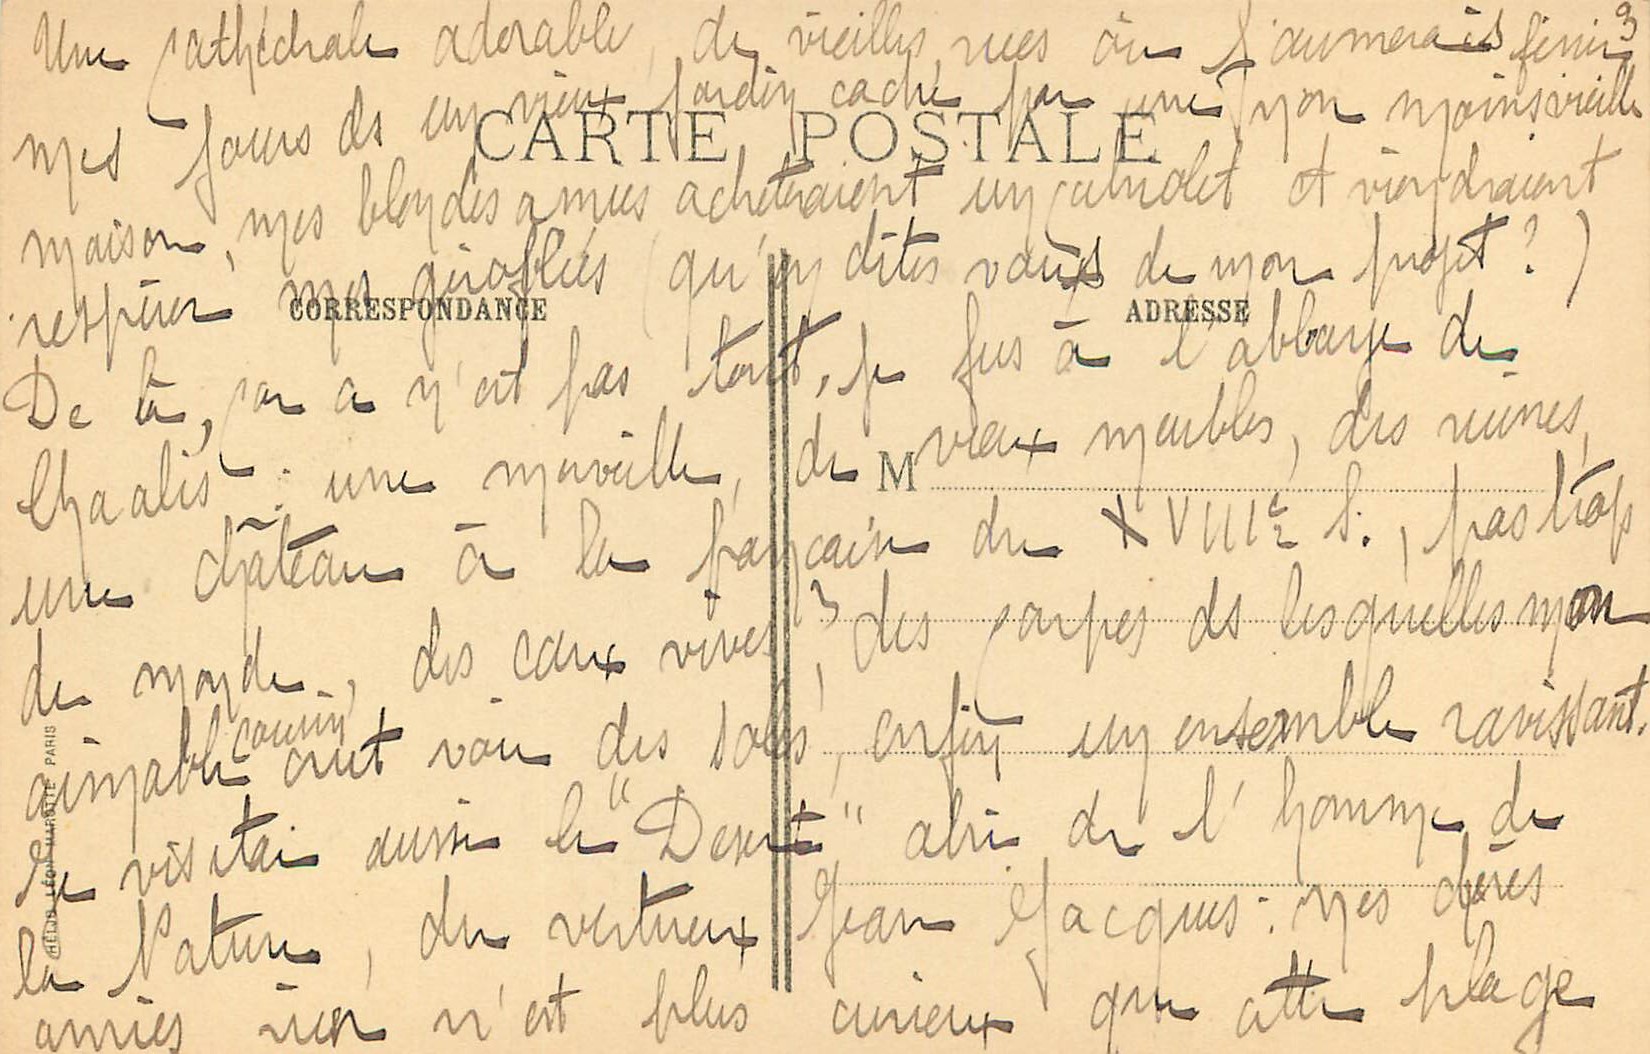 3
Une cathédrale adorable, de vieilles rues où j'aimerais finir
mes jours ds un vieux jardin caché par une non moins vieille
CARTE POSTALE
maison, mes blondes amies achèteraient un cabriolet et viendraient
respirer mes giroflées (qu'en dites vous de mon projet ?)
CORRESPONDANCE
ADRESSE
De là, car ce n'est pas tout, je fus à l'abbaye de
Chaalis : une merveille, de vieux meubles, des ruines,
M
une château à la française du XVIIIe S., pas trop
de monde, des eaux vives, des carpes ds lesquelles mon
aimable cousin crut voir des soles, enfin un ensemble ravissant.
Je visitai aussi le "Desert" abri de l'homme de
la Nature, du vertueux Jean Jacques : mes chères
amies rien n'est plus curieux que cette plage
HELIO LÉON MAROTTE PARIS